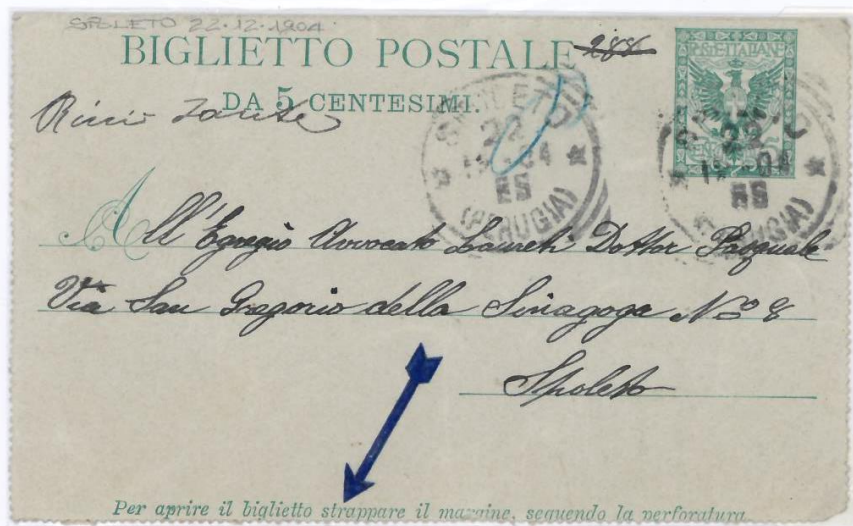 SPOLETO 22.12.1904
BIGLIETTO POSTALE 288
DA 5 CENTESIMI.
POSTE ITALIANE
SPOLETO
22
12-04
(PERUGIA)
22
All'Egregio Avvocato Laureti Dottor Pasquale
Via San Gregorio della Sinagoga No 8
Spoleto
Per aprire il biglietto strappare il margine, seguendo la perforatura.